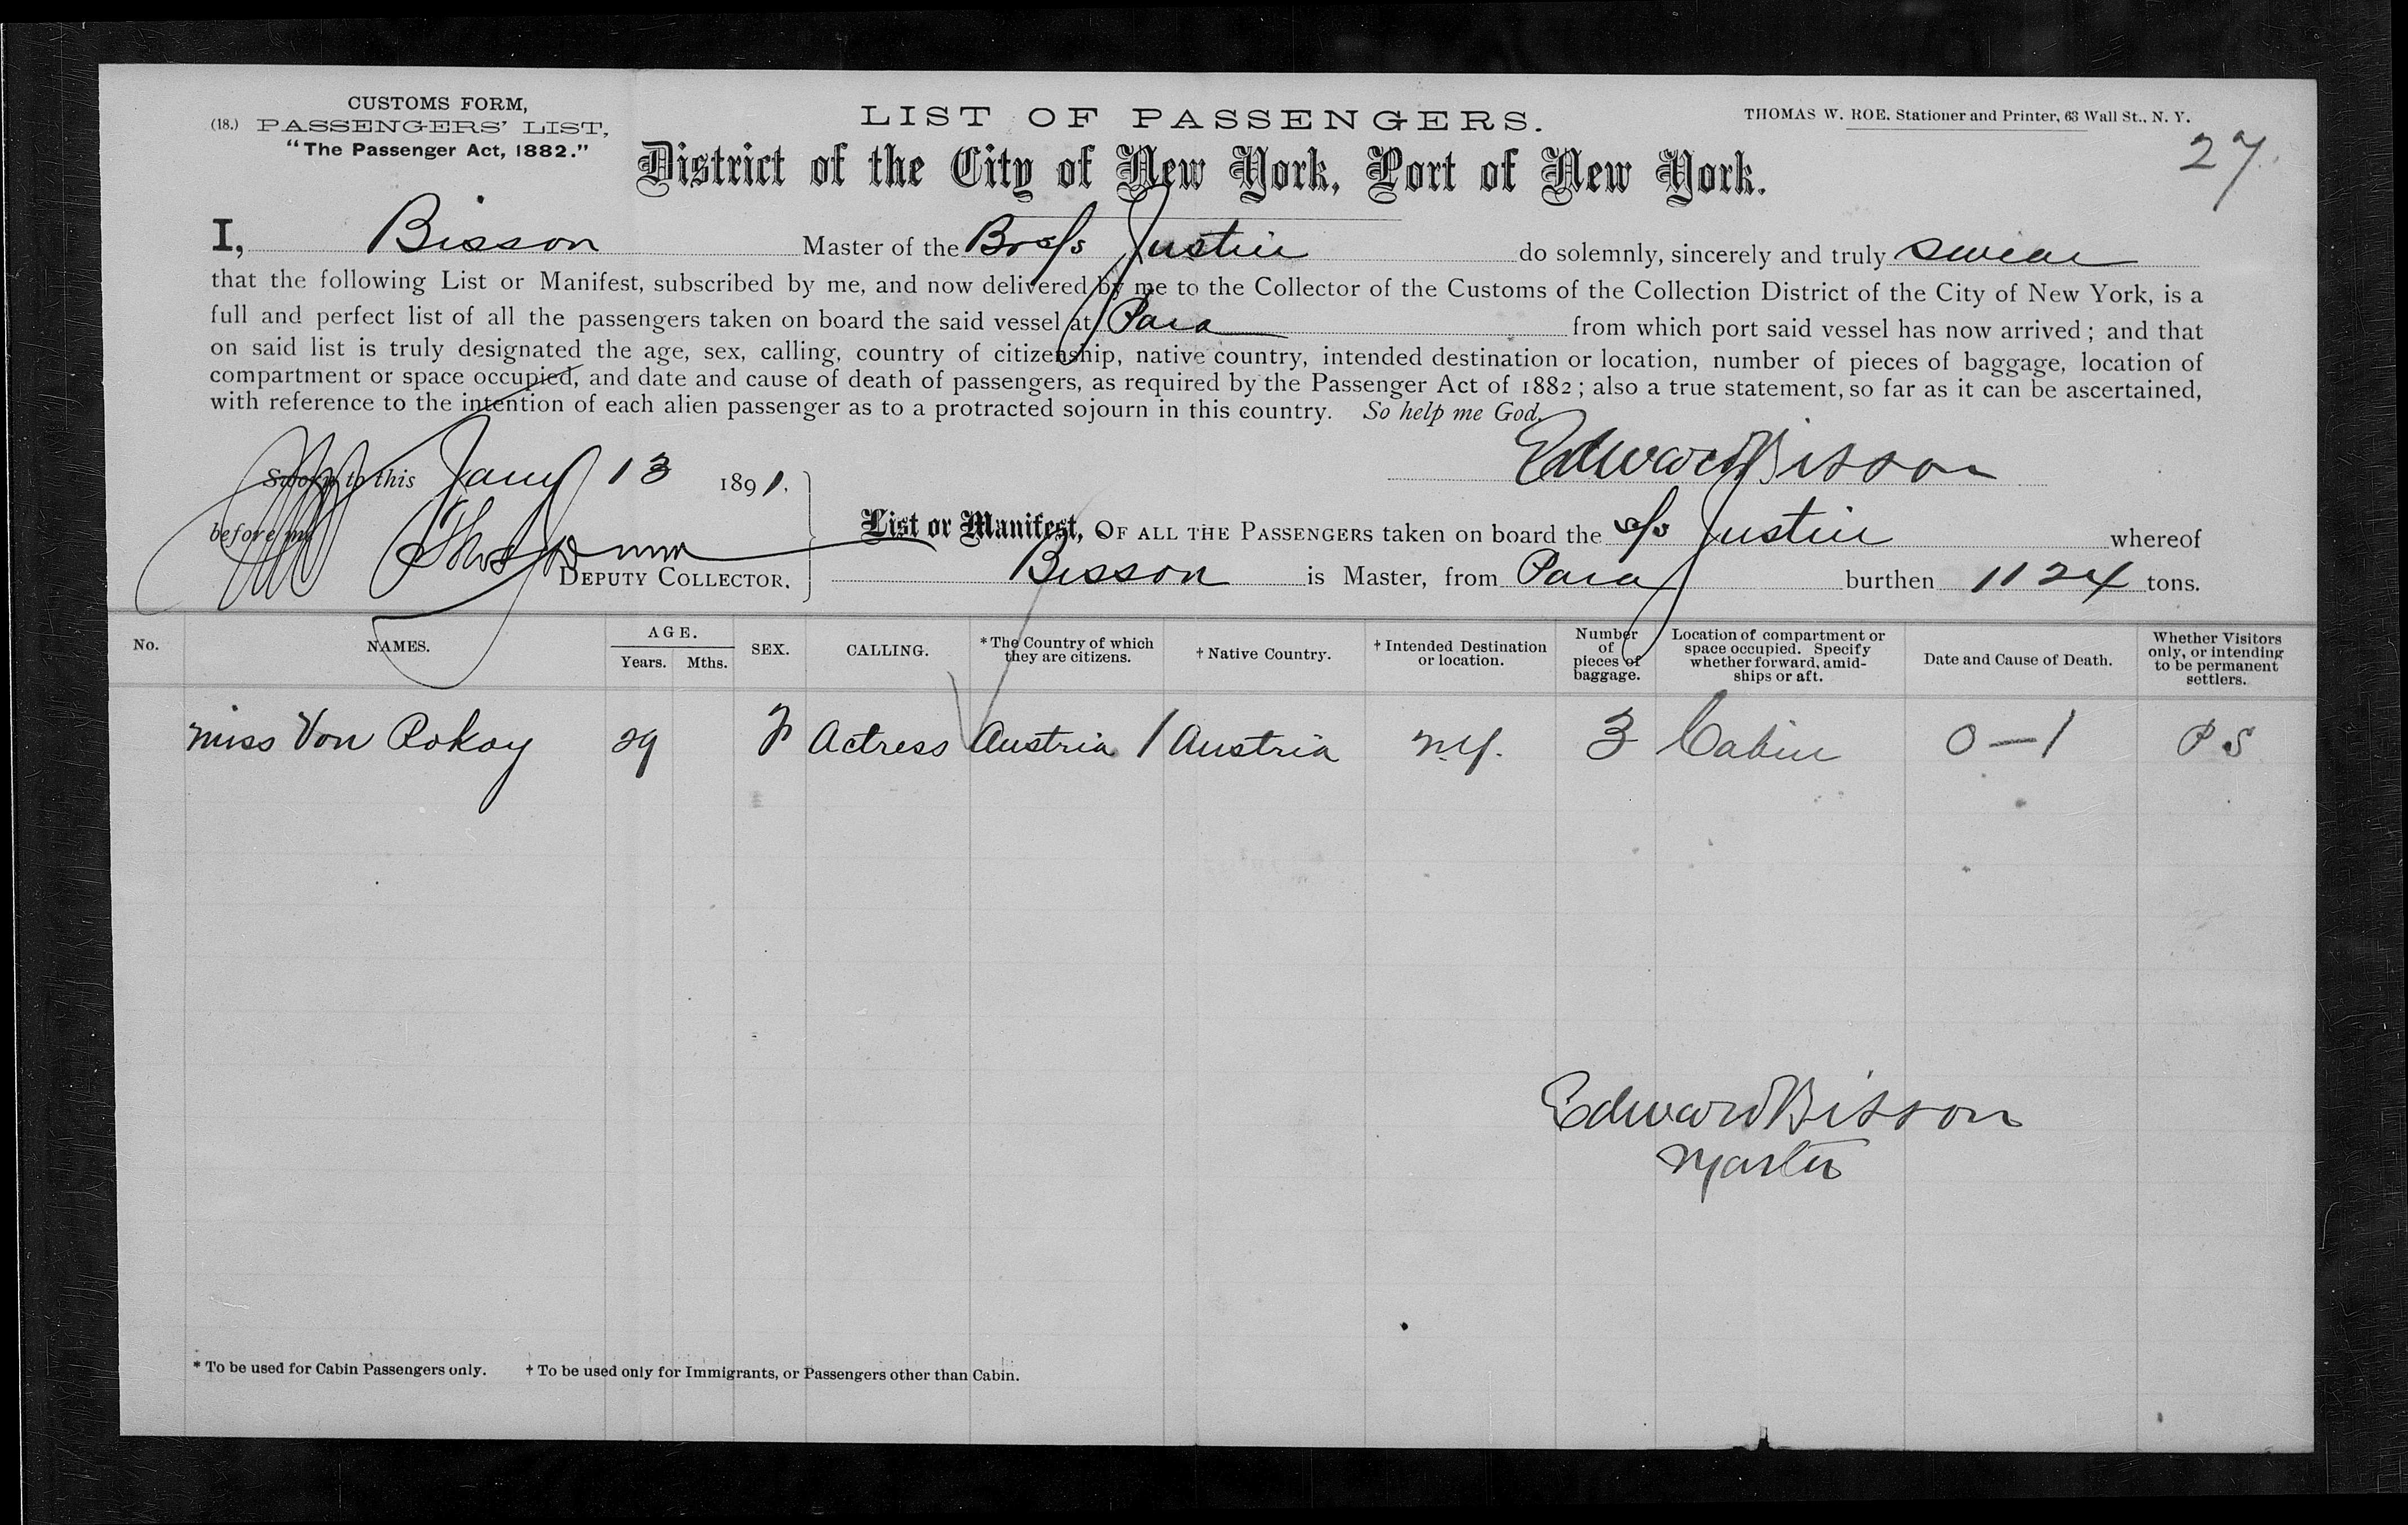 CUSTOMS FORM,
(18.) PASSENGERS' LIST,
"The Passenger Act, 1882."
LIST OF PASSENGERS.
THOMAS W. ROE, Stationer and Printer, 63 Wall St., N. Y.
27
District of the City of New York, Port of New York.
I, Bisson Master of the Br s/s Justin do solemnly, sincerely and truly swear
that the following List or Manifest, subscribed by me, and now delivered by me to the Collector of the Customs of the Collection District of the City of New York, is a
full and perfect list of all the passengers taken on board the said vessel at Para from which port said vessel has now arrived; and that
on said list is truly designated the age, sex, calling, country of citizenship, native country, intended destination or location, number of pieces of baggage, location of
compartment or space occupied, and date and cause of death of passengers, as required by the Passenger Act of 1882; also a true statement, so far as it can be ascertained,
with reference to the intention of each alien passenger as to a protracted sojourn in this country. So help me God,
Sworn to this Jany 13 1891.
Edward Bisson
before me
DEPUTY COLLECTOR.
List or Manifest, OF ALL THE PASSENGERS taken on board the s/s Justin whereof
Bisson is Master, from Para burthen 1124 tons.
No. NAMES. AGE. Years. Mths. SEX. CALLING. * The Country of which they are citizens. † Native Country. † Intended Destination or location. Number of pieces of baggage. Location of compartment or space occupied. Specify whether forward, amidships or aft. Date and Cause of Death. Whether Visitors only, or intending to be permanent settlers.
Miss Von Rokay 29 F Actress Austria / Austria N.Y. 3 Cabin 0—1 P S
Edward Bisson
Master
* To be used for Cabin Passengers only. † To be used only for Immigrants, or Passengers other than Cabin.